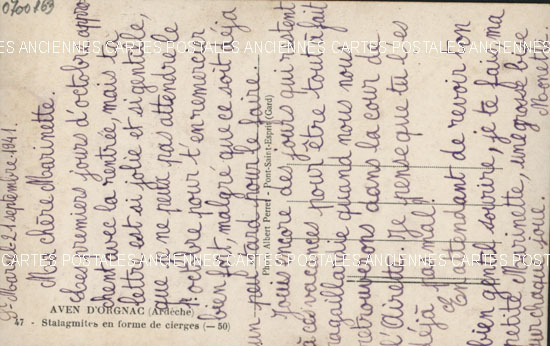 0700169
St Marcel 21 septembre 1941.
Ma chère Marinette.
Les premiers jours d'octobre appro-
chent avec la rentrée, mais ta
lettre est si jolie et si gentille,
que je ne peux pas attendre le
1er octobre pour t'en remercier
bien fort, malgré que ce soit déjà
un peu tard pour le faire.
Jouis encore des jouts qui restent
à ces vacances pour être tout à fait
ragaillardie quand nous nous
retrouverons dans la cour de
l'Airette. Je pense que tu l'es
déjà pas mal.
En attendant de revoir ton
bien gentil sourire, je te fais, ma
petite Marinette, une grosse bise
sur chaque joue.
CARTES POSTALES ANCIENNES
Photo Albert Perret - Pont-Saint-Esprit (Gard)
AVEN D'ORGNAC (Ardèche)
47 - Stalagmites en forme de cierges (— 50)